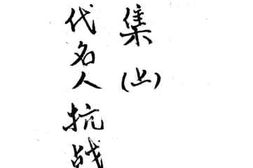 集(上)
代名人抗战